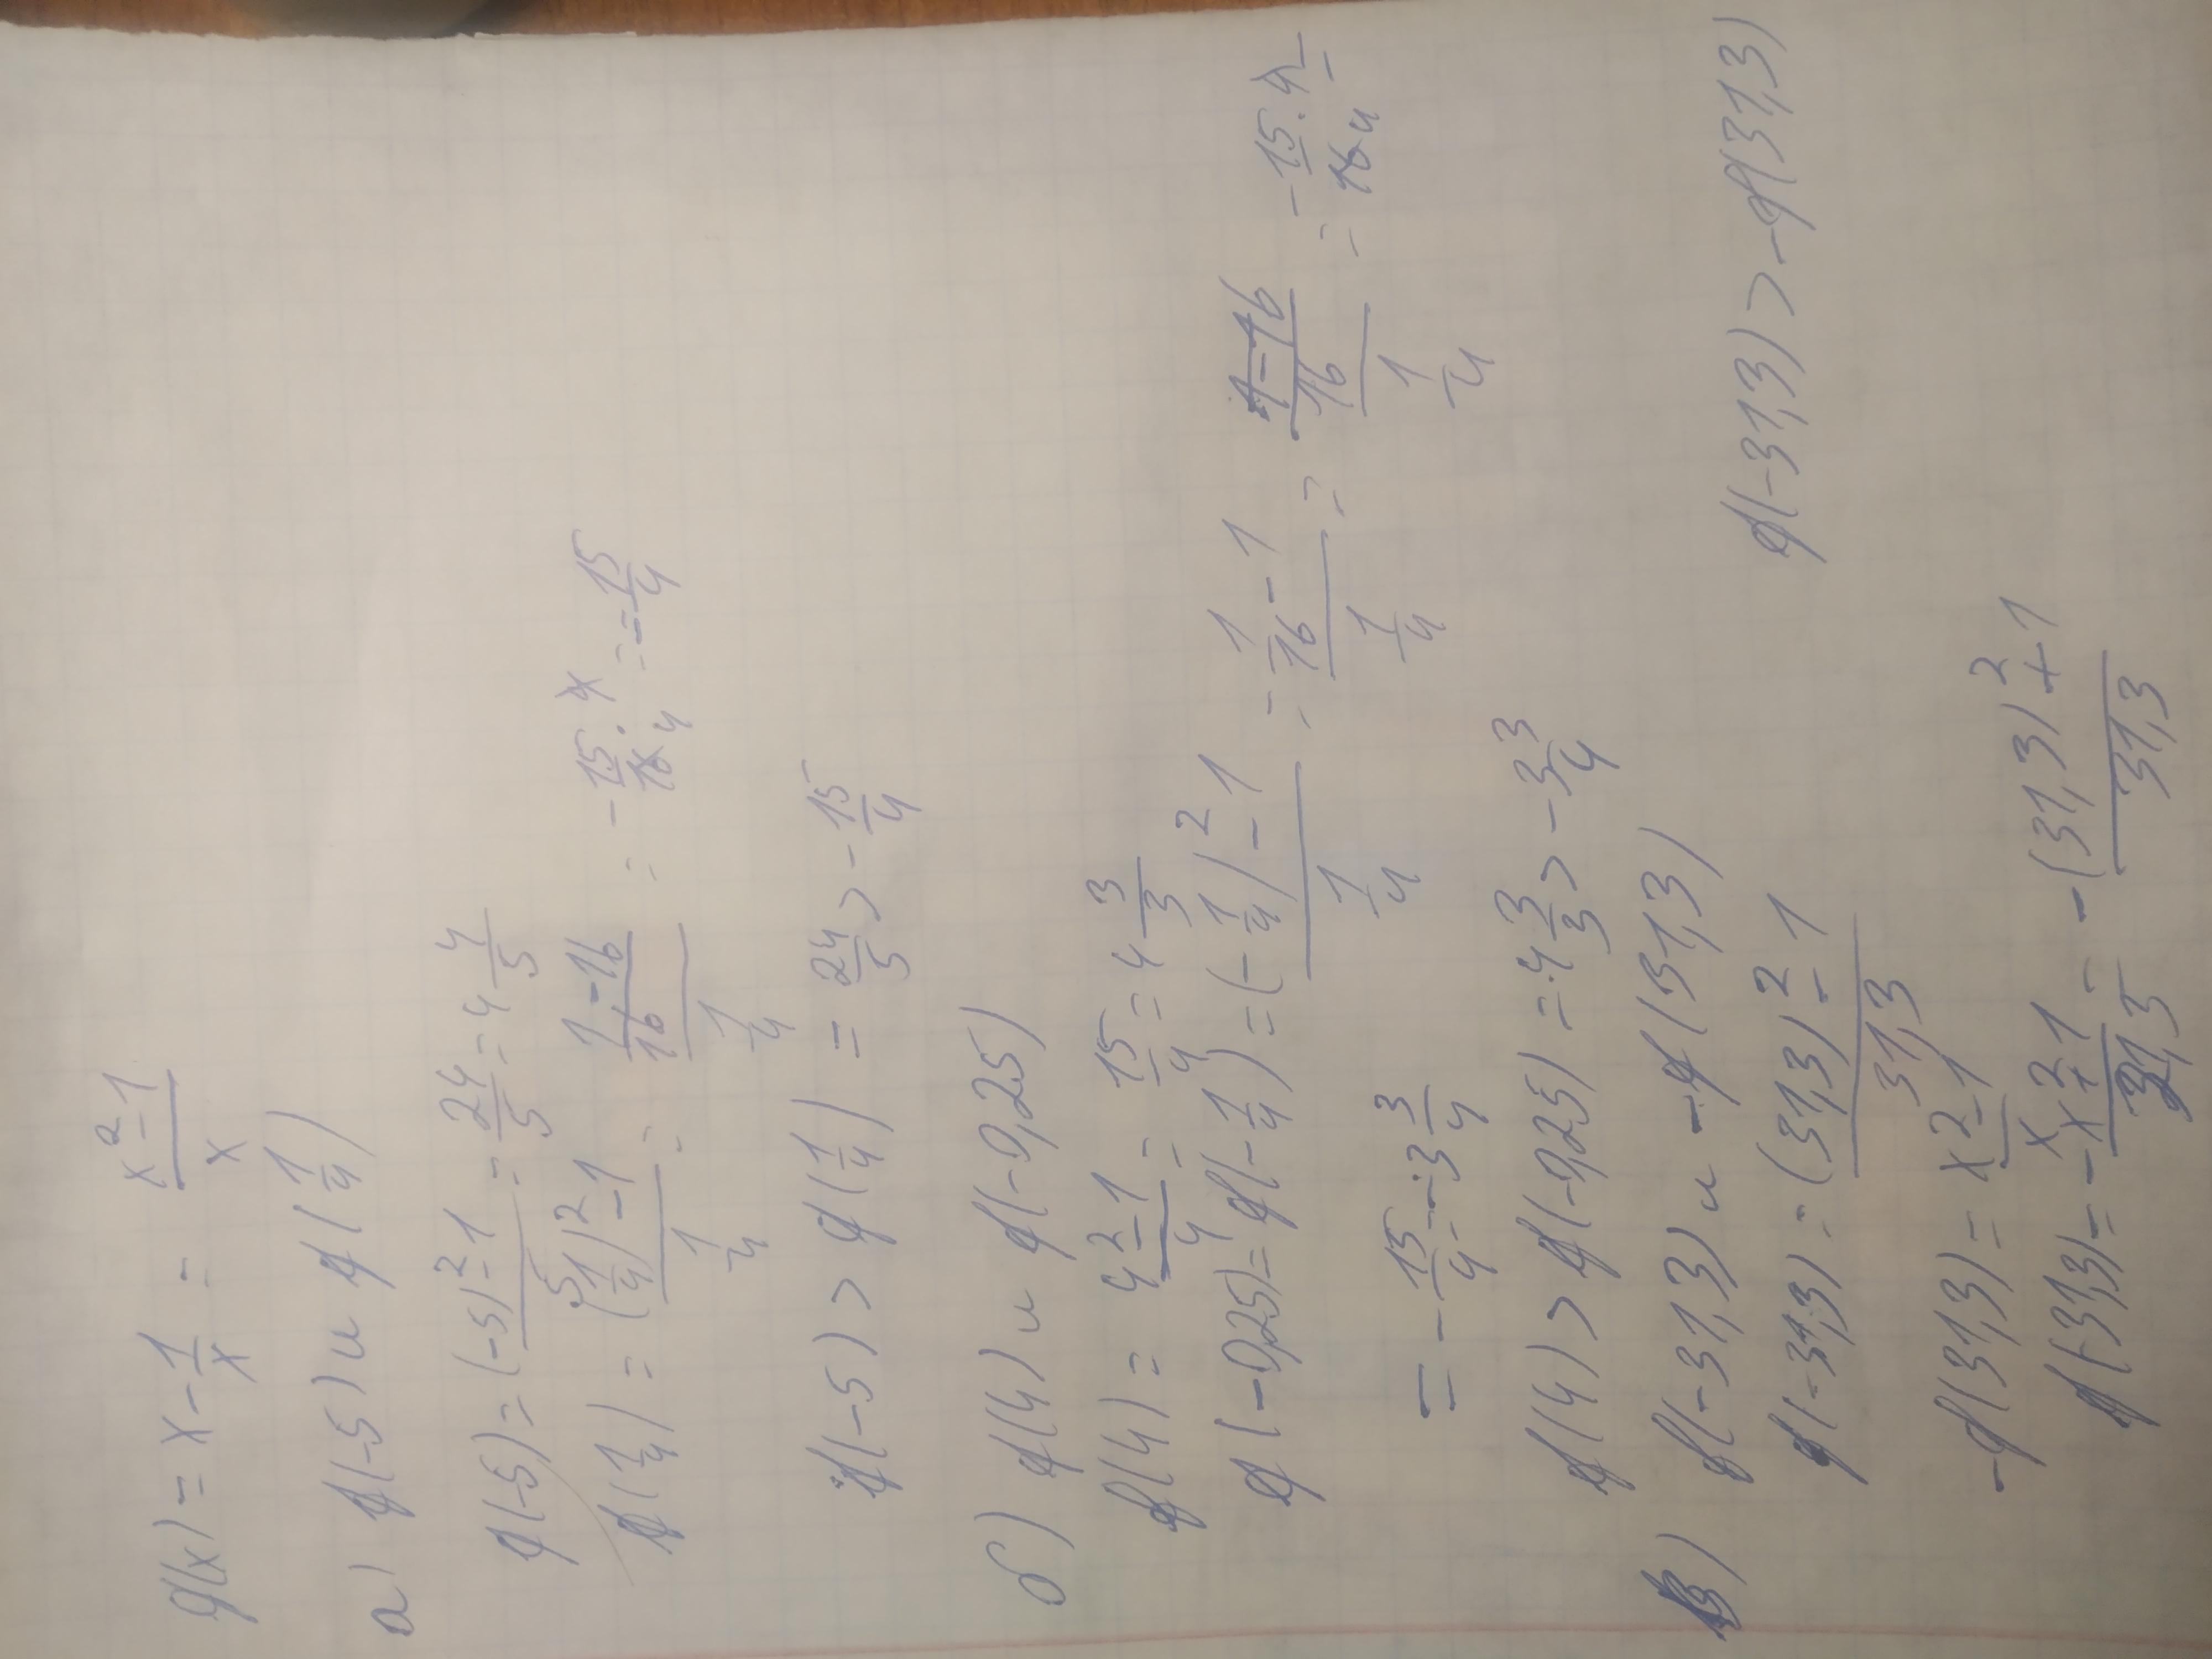 φ(x) = x - 1/x = (x² - 1)/x
а) φ(-5) и φ(1/4)
φ(-5) = ((-5)² - 1)/5 = 24/5 = 4 4/5
φ(1/4) = ((1/4)² - 1)/(1/4) = ((1 - 16)/16)/(1/4) = - 15/16 · 4 = - 15/4
φ(-5) > φ(1/4) = 24/5 > - 15/4
б) φ(4) и φ(-0,25)
φ(4) = (4² - 1)/4 = 15/4 = 4 3/3
φ(-0,25) = φ(-1/4) = ((-1/4)² - 1)/(1/4) = (1/16 - 1)/(1/4) = ((1 - 16)/16)/(1/4) = - 15/16 · 4/1 =
= - 15/4 = - 3 3/4
φ(4) > φ(-0,25) = 4 3/3 > - 3 3/4
в) φ(-31,3) и - φ(31,3)
φ(-31,3) = ((31,3)² - 1)/31,3
φ(-31,3) > -φ(31,3)
-φ(31,3) = (x² - 1)/x
φ(-31,3) = (-x² + 1)/31,3 = (-(31,3)² + 1)/31,3